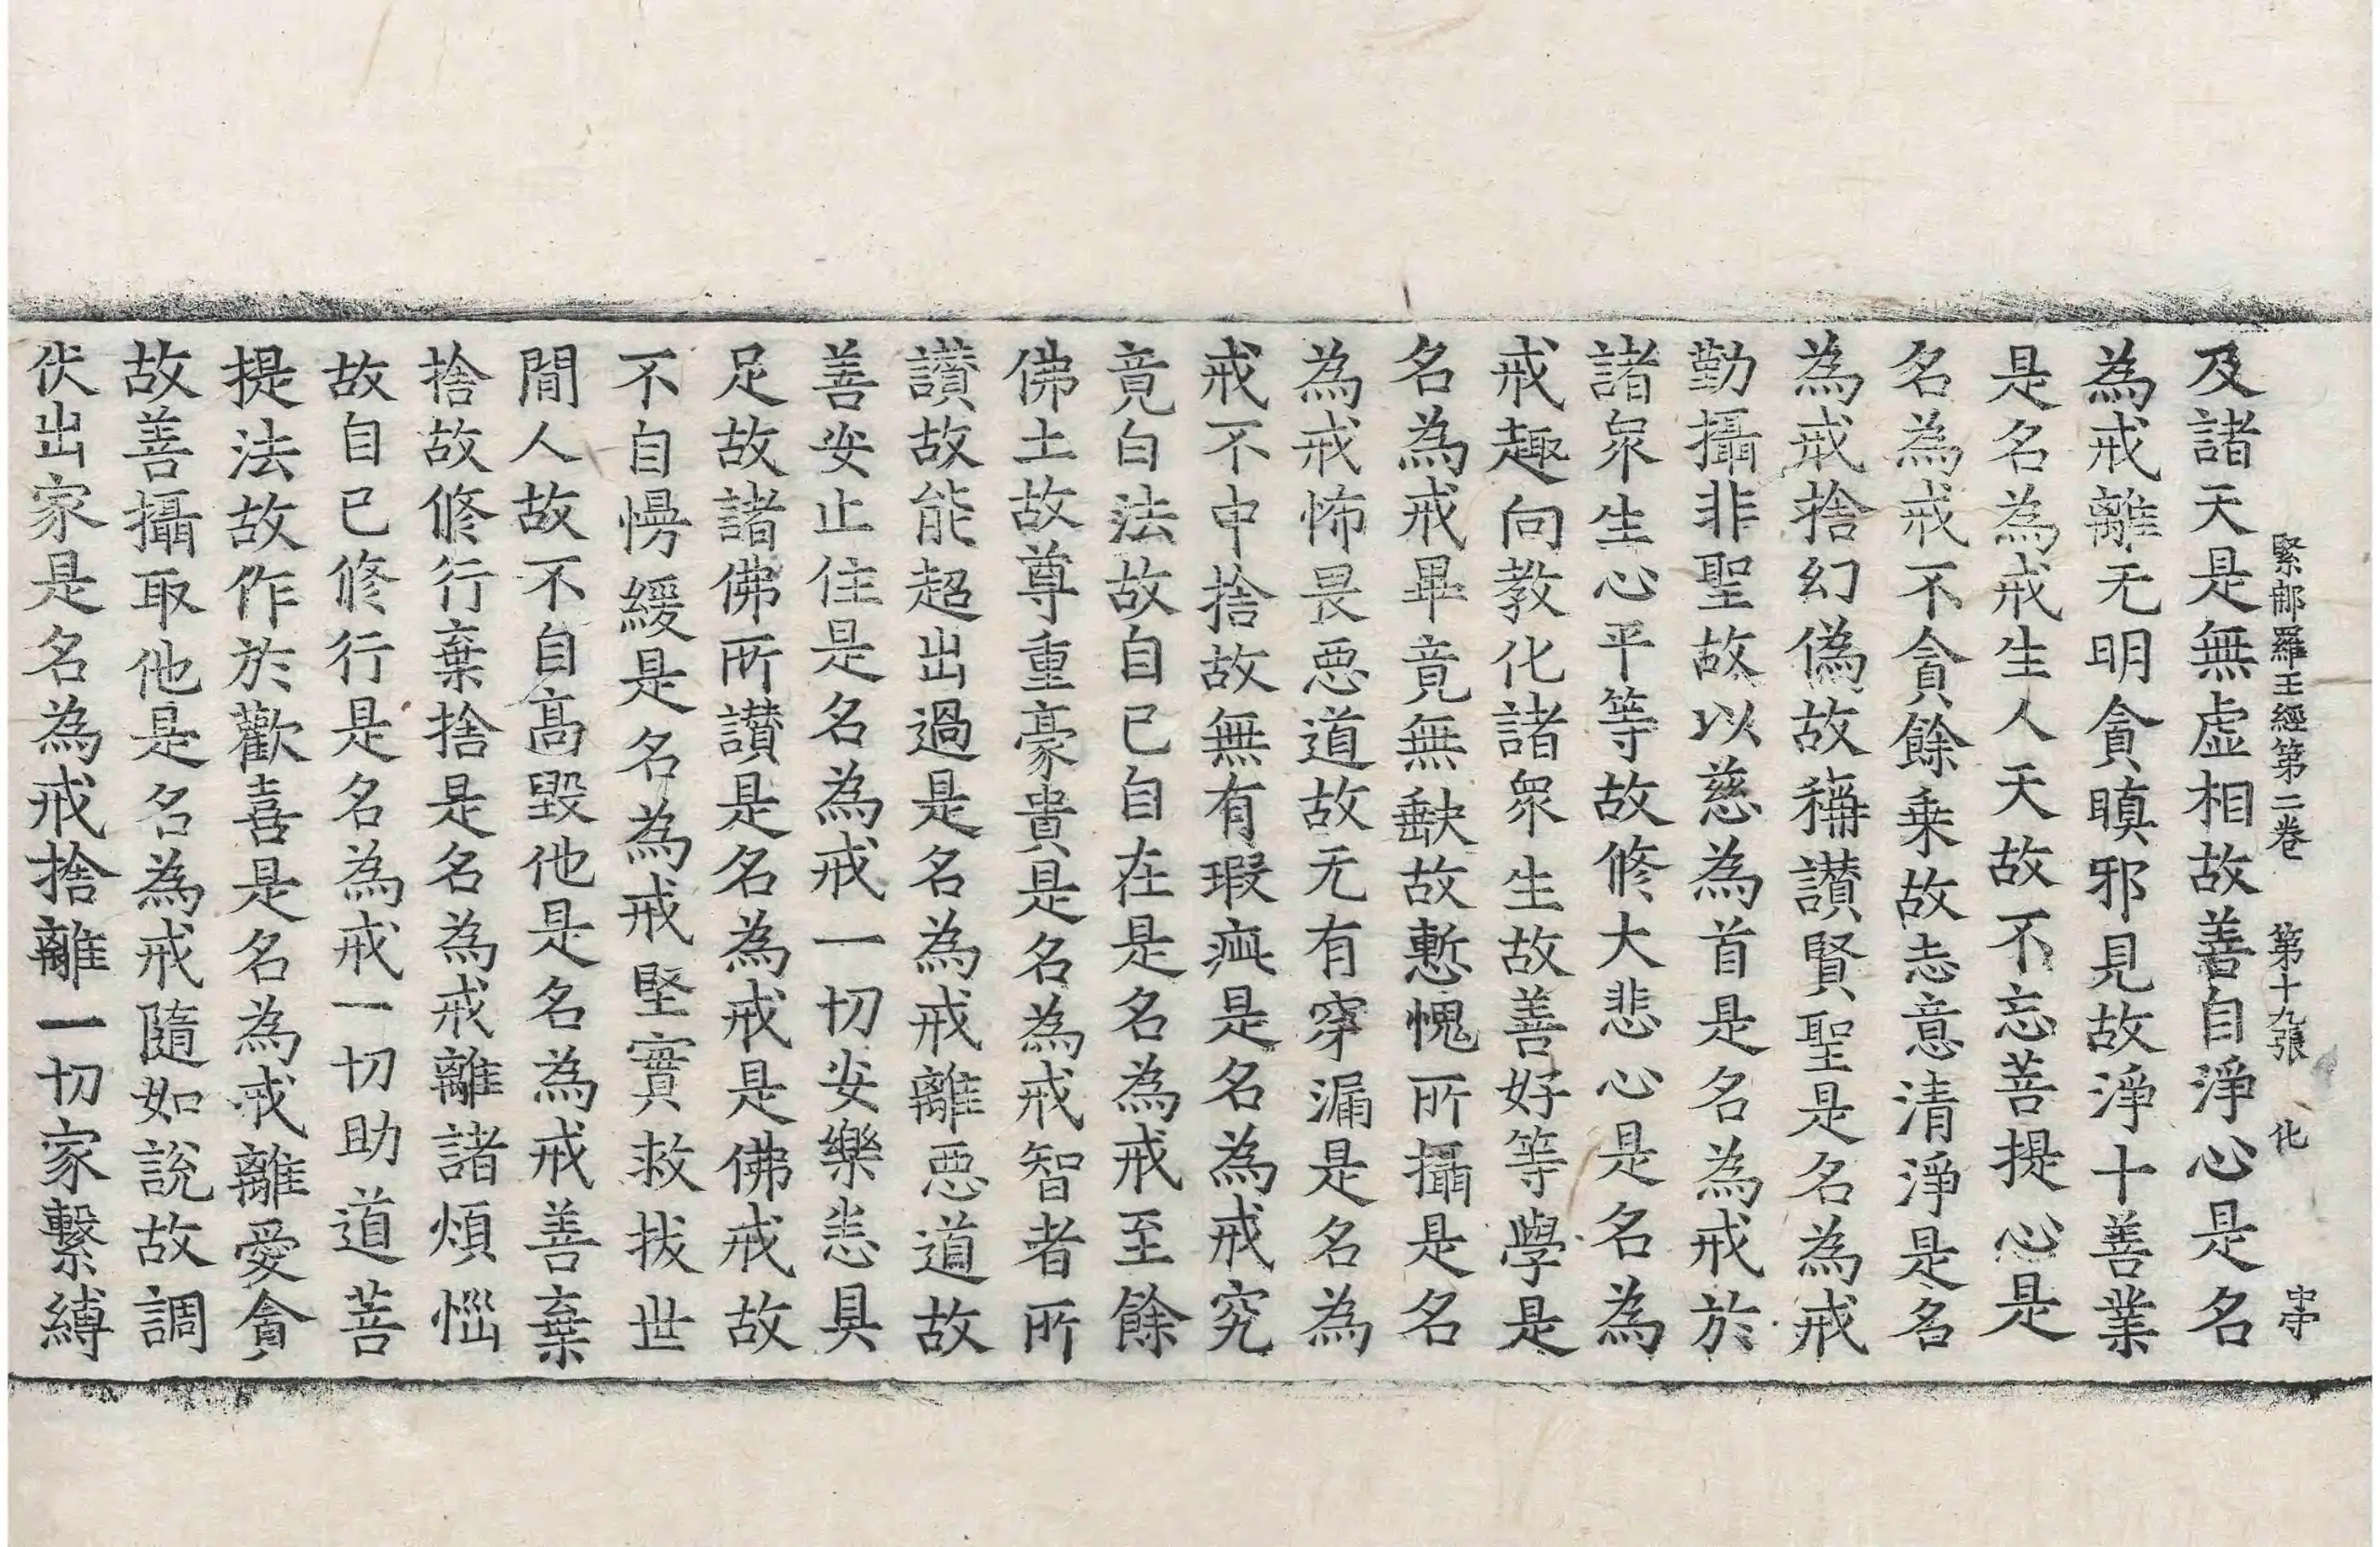 緊那羅王經第二卷　第十九張　化　守
及諸天是無虛相故善自淨心是名
為戒離无明貪瞋邪見故淨十善業
是名為戒生人天故不忘菩提心是
名為戒不貪餘乗故志意清淨是名
為戒捨幻偽故稱讃賢聖是名為戒
勤攝非聖故以慈為首是名為戒於
諸衆生心平等故修大悲心是名為
戒趣向教化諸衆生故善好等學是
名為戒畢竟無缺故慙愧所攝是名
為戒怖畏惡道故无有穿漏是名為
戒不中捨故無有瑕疵是名為戒究
竟白法故自已自在是名為戒至餘
佛土故尊重豪貴是名為戒智者所
讃故能超出過是名為戒離惡道故
善安止住是名為戒一切安樂恙具
足故諸佛所讃是名為戒是佛戒故
不自慢緩是名為戒堅實救拔世
間人故不自高毀他是名為戒善棄
捨故修行棄捨是名為戒離諸煩惱
故自已修行是名為戒一切助道菩
提法故作於歡喜是名為戒離愛貪
故善攝取他是名為戒隨如說故調
伏出家是名為戒捨離一切家繫縛